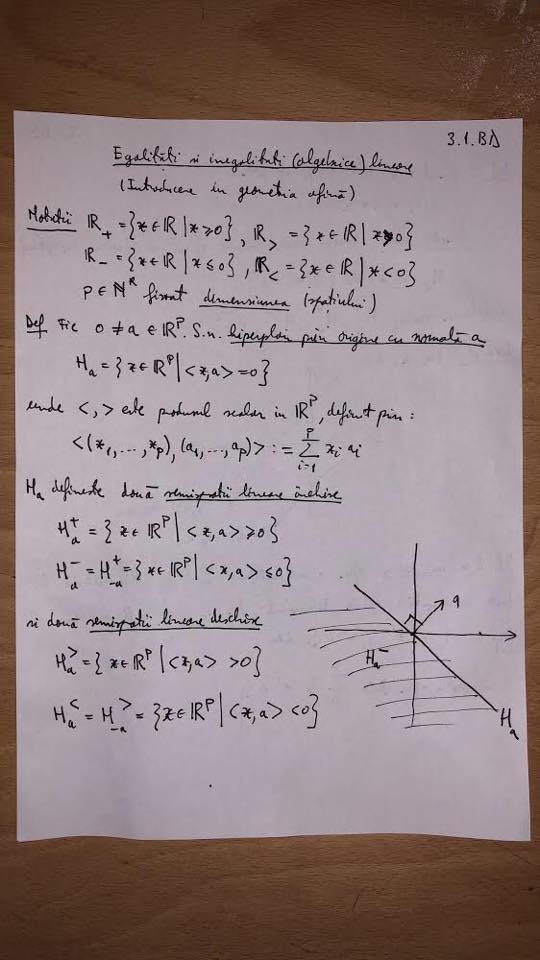 3.1.BD
Egalități si inegalitati (algebrice) liniare
(Introducere in geometria afină)
Notatii ℝ₊ = {x ∈ ℝ | x ≥ 0}, ℝ_> = {x ∈ ℝ | x > 0}
ℝ₋ = {x ∈ ℝ | x ≤ 0}, ℝ_< = {x ∈ ℝ | x < 0}
p ∈ ℕ* fixat dimensiunea (spațiului)
Def Fie 0 ≠ a ∈ ℝᵖ. S.n. hiperplan prin origine cu normală a
Hₐ = {x ∈ ℝᵖ | <x, a> = 0}
unde < , > este produsul scalar in ℝᵖ, definit prin:
<(x₁, ..., xₚ), (a₁, ..., aₚ)> := ∑_{i=1}^{p} xᵢ aᵢ
Hₐ defineste două semispatii liniare închise
Hₐ⁺ = {x ∈ ℝᵖ | <x, a> ≥ 0}
Hₐ⁻ = H₋ₐ⁺ = {x ∈ ℝᵖ | <x, a> ≤ 0}
si două semispatii liniare deschise
Hₐ^> = {x ∈ ℝᵖ | <x, a> > 0}
Hₐ^< = H₋ₐ^> = {x ∈ ℝᵖ | <x, a> < 0}
a
Hₐ⁻
Hₐ